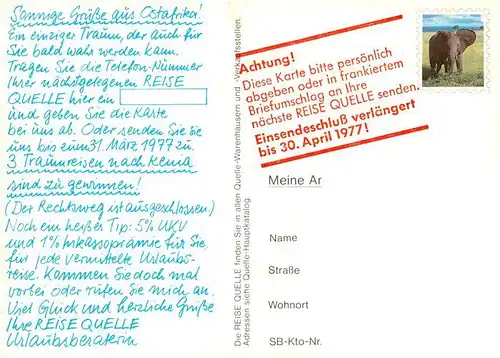 Sonnige Grüße aus Ostafrika!
Ein einziger Traum, der auch für
Sie bald wahr werden kann.
Tragen Sie die Telefon-Nummer
Ihrer nächstgelegenen REISE
QUELLE hier ein
und geben Sie die Karte
bei uns ab. Oder senden Sie sie
uns bis zum 31 März 1977 zu.
3 Traumreisen nach Kenia
sind zu gewinnen!
(Der Rechtsweg ist ausgeschlossen)
Noch ein heißer Tip: 5% UKV
und 1% Inkassoprämie für Sie,
für jede vermittelte Urlaubs-
reise. Kommen Sie doch mal
vorbei oder rufen Sie mich an.
Viel Glück und herzliche Grüße
Ihre REISE QUELLE
Urlaubsberaterin
Die REISE QUELLE finden Sie in allen Quelle-Warenhäusern und -Verkaufsstellen.
Adressen siehe Quelle-Hauptkatalog
Achtung!
Diese Karte bitte persönlich
abgeben oder in frankiertem
Briefumschlag an Ihre
nächste REISE QUELLE senden.
Einsendeschluß verlängert
bis 30. April 1977!
Meine Ar
Name
Straße
Wohnort
SB-Kto-Nr.